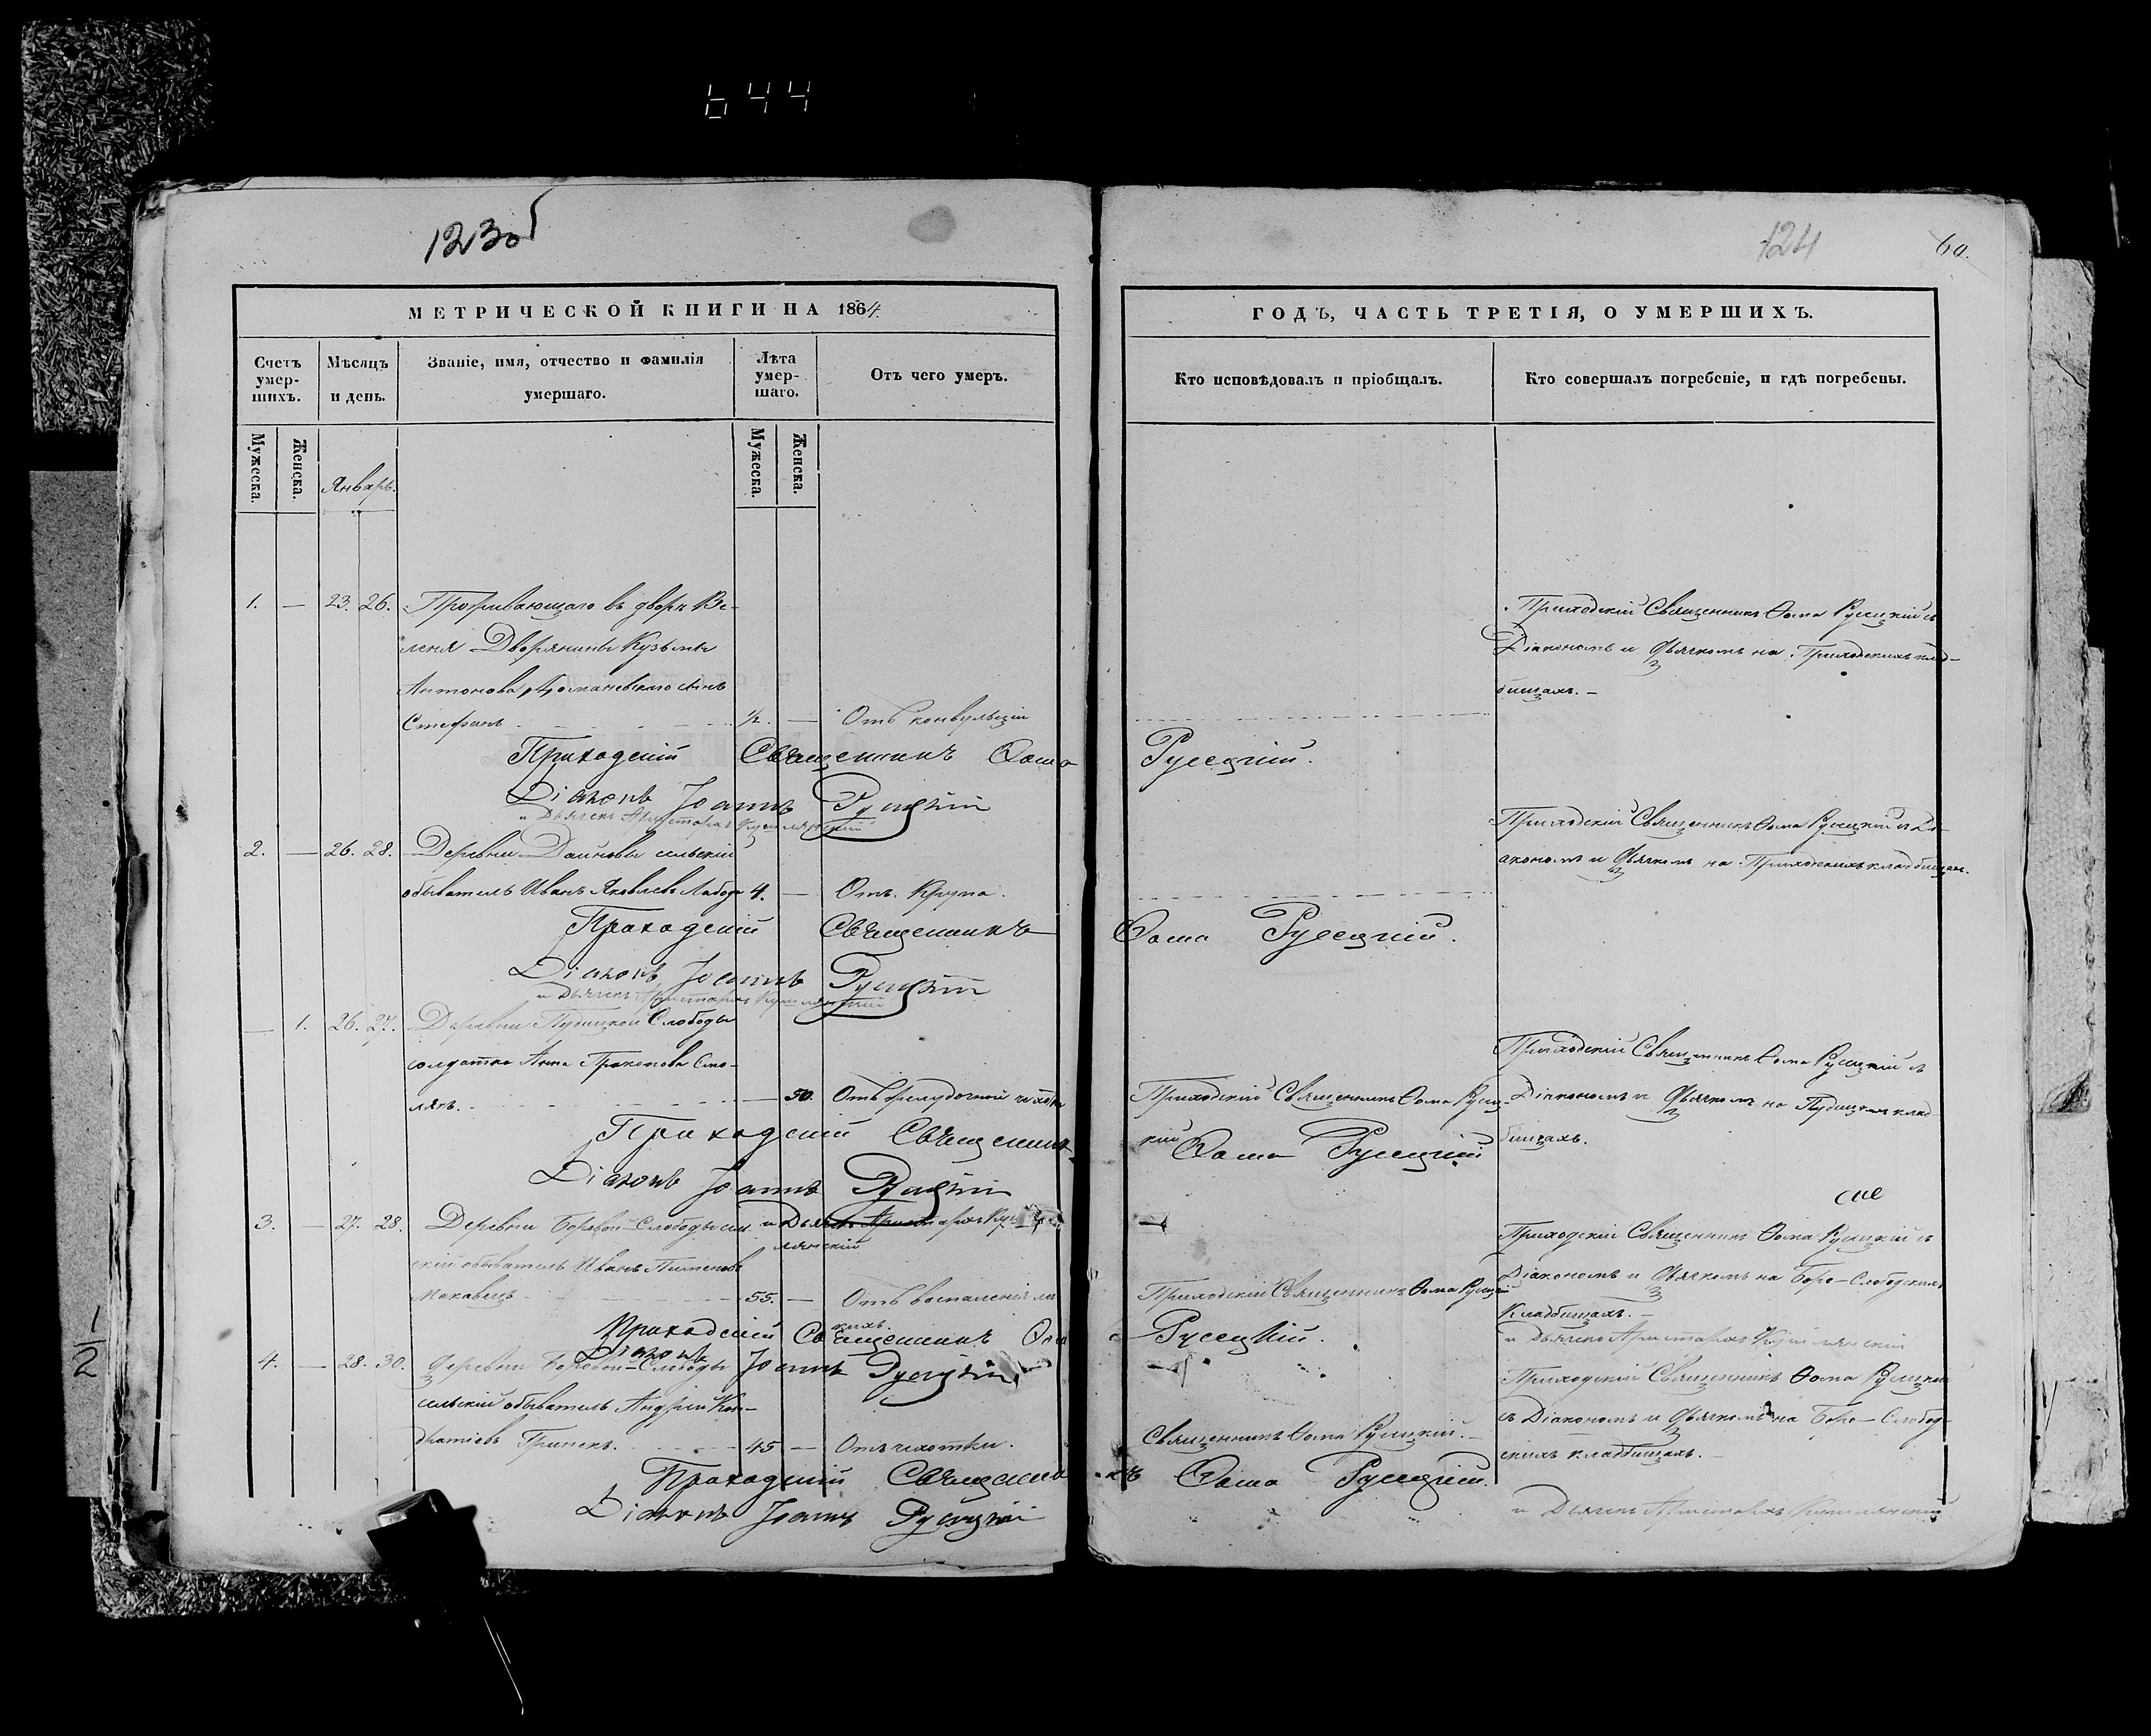 644
123 об
124
60.
МЕТРИЧЕСКОЙ КНИГИ НА 1864
ГОДЪ, ЧАСТЬ ТРЕТІЯ, О УМЕРШИХЪ.
Счетъ умер-шихъ.
Мѣсяцъ и день.
Званіе, имя, отчество и фамилія умершаго.
Лѣта умер-шаго.
Отъ чего умеръ.
Кто исповѣдовалъ и пріобщалъ.
Кто совершалъ погребеніе, и гдѣ погребены.
Мужеска.
Женска.
Январь.
Мужеска.
Женска.
1. — 23. 26. Проживающаго въ дворѣ Ве-
леня Дворянина Кузьмы
Антонова сынъ
Стефанъ ½. — Отъ конвульціи
Приходскій Священникъ Ѳома Русецкій с
Діакономъ и дьячкомъ на Приходскихъ клад-
бищахъ. —
Приходскій Священникъ Ѳома Русецкій.
Діаконъ Іоаннъ Русецкій
и Дьячекъ Аристархъ
2. — 26. 28. Деревни Дайновы сельскій
обыватель Иванъ Яковлевъ 4. — Отъ Крупа.
Приходскій Священникъ Ѳома Русецкій с Ді-
акономъ и дьячкомъ на Приходскихъ кладбищахъ.
Приходскій Священникъ Ѳома Русецкій.
Діаконъ Іоаннъ Русецкій
и Дьячекъ Аристархъ
— 1. 26. 27. Деревни Слободы
солдатка Анна Прокопова Смо-
лякъ. — 50. Отъ желудочной
Приходскій Священникъ Ѳома Русец-
кій
Приходскій Священникъ Ѳома Русецкій с
Діакономъ и дьячкомъ на клад-
бищахъ.
Приходскій Священникъ Ѳома Русецкій
Діаконъ Іоаннъ Русецкій
и Дьячекъ Аристархъ
3. — 27. 28. Деревни Боровой-Слободы сель-
скій обыватель Иванъ
55. — Отъ воспаленія
Приходскій Священникъ Ѳома Русецкій
Приходскій Священникъ Ѳома Русецкій с
Діакономъ и дьячкомъ на Боро-Слободскихъ
Кладбищахъ. —
Приходскій Священникъ Ѳома Русецкій.
и Дьячекъ Аристархъ
Діаконъ Іоаннъ Русецкій
4. — 28. 30. Деревни Боровой-Слободы
сельскій обыватель Андрей Кон-
дратіевъ 45 — Отъ чахотки.
Священникъ Ѳома Русецкій. —
Приходскій Священникъ Ѳома Русецкій
съ Діакономъ и дьячкомъ на Боро-Слобод-
скихъ кладбищахъ. —
Приходскій Священникъ Ѳома Русецкій.
Діаконъ Іоаннъ Русецкій
и Дьячекъ Аристархъ
1/2